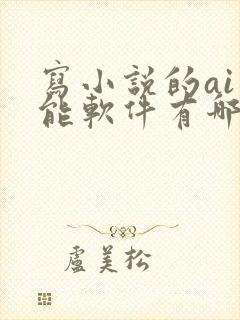 寫小說的ai
能軟件有哪
盧美松